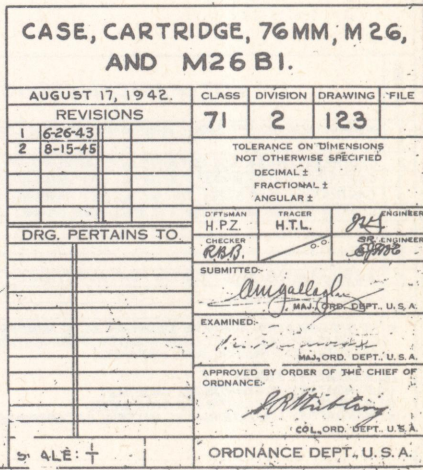 CASE, CARTRIDGE, 76MM, M26,
AND M26B1.
AUGUST 17, 1942.
REVISIONS
1 6-26-43
2 8-15-45
DRG. PERTAINS TO
CLASS DIVISION DRAWING FILE
71 2 123
TOLERANCE ON DIMENSIONS
NOT OTHERWISE SPECIFIED
DECIMAL ±
FRACTIONAL ±
ANGULAR ±
D'FTSMAN TRACER ENGINEER
H.P.Z. H.T.L.
CHECKER SR. ENGINEER
R.B.B. O.O.
SUBMITTED:-
MAJ., ORD. DEPT., U.S.A.
EXAMINED:-
MAJ., ORD. DEPT., U.S.A.
APPROVED BY ORDER OF THE CHIEF OF
ORDNANCE:-
COL., ORD. DEPT., U.S.A.
ORDNANCE DEPT., U.S.A.